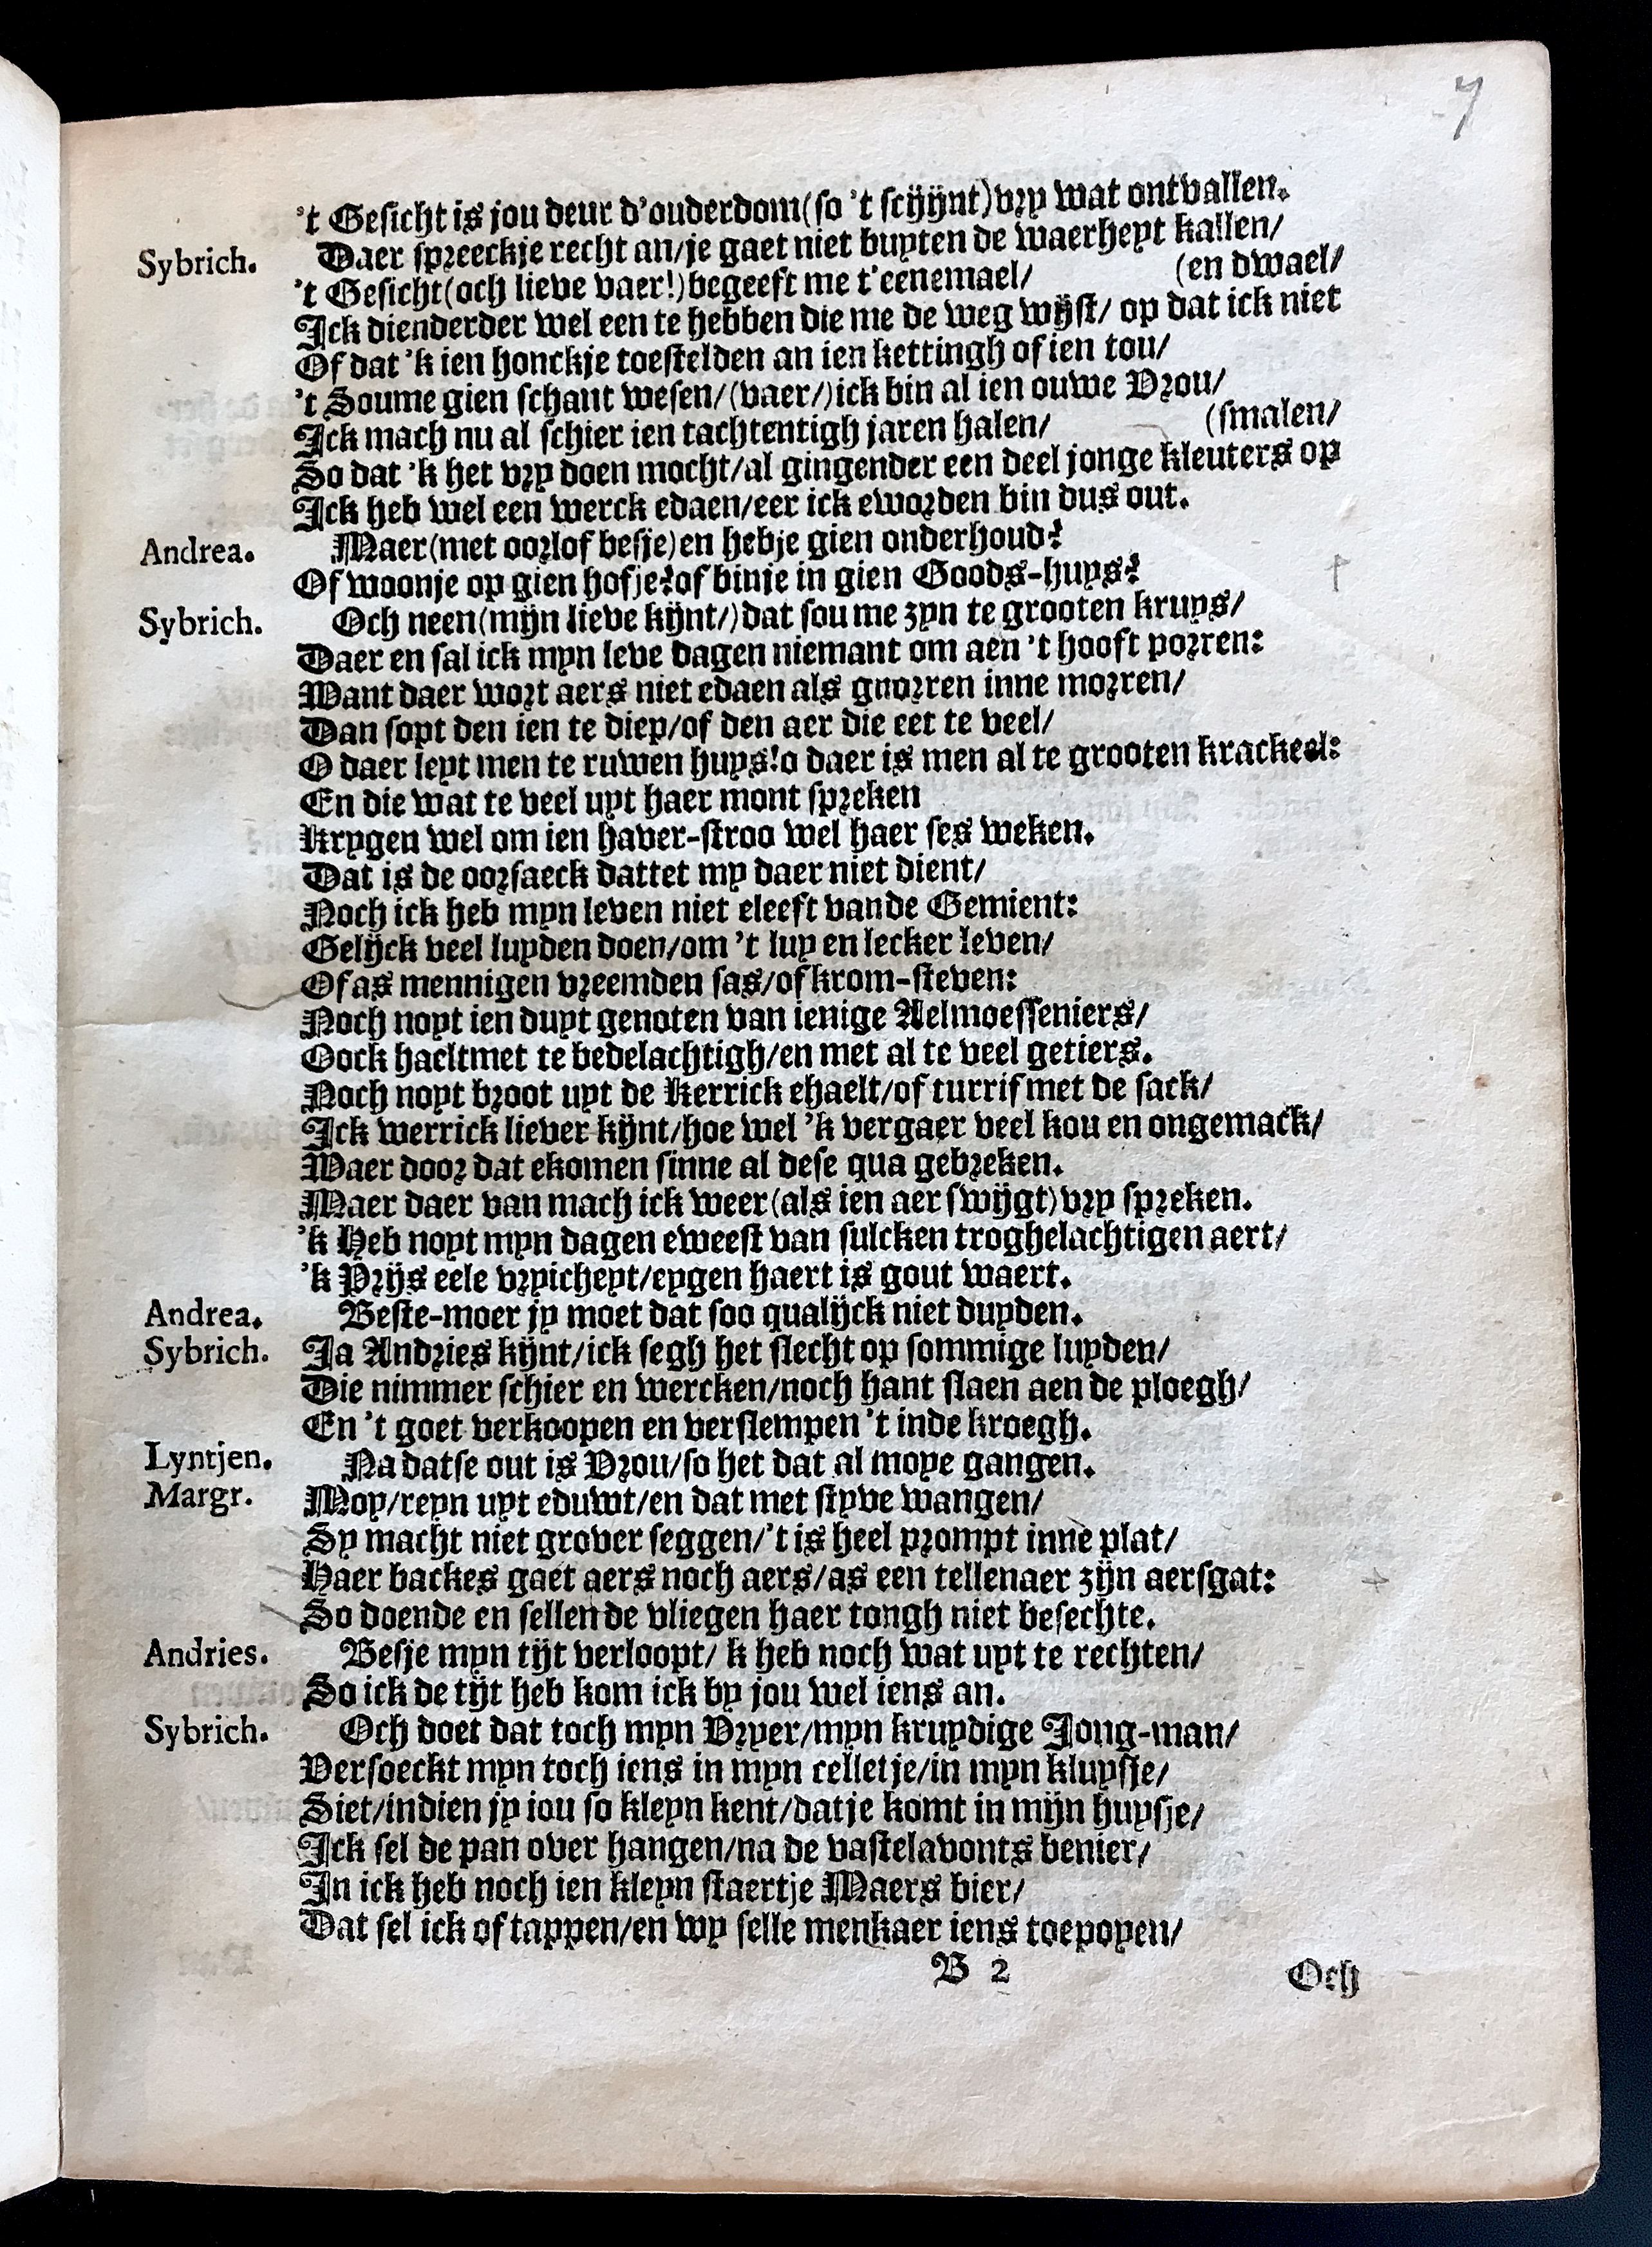 7
't Gesicht is jou deur d'ouderdom(so 't scijnt)vry wat ontvallen.
Sybrich. Daer spreeckje recht an/je gaet niet buyten de waerheyt kallen/
't Gesicht(och lieve vaer!)begeeft me t'eenemael/ (en dwael/
Ick dienderder wel een te hebben die me de weg wijst/ op dat ick niet
Of dat 'k ien honckje toestelden an ien kettingh of ien tou/
't Soume gien schant wesen/(vaer/)ick bin al ien ouwe Vrou/
Ick mach nu al schier ien tachtentigh jaren halen/ (smalen/
So dat 'k het vry doen mocht/al gingender een deel jonge kleuters op
Ick heb wel een werck edaen/eer ick eworden bin dus out.
Andrea. Maer(met oorlof besje)en hebje gien onderhoud?
Of woonje op gien hofje?of binje in gien Goods-huys?
Sybrich. Och neen(mijn lieve kijnt/)dat sou me zyn te grooten kruys/
Daer en sal ick myn leve dagen niemant om aen 't hooft porren:
Want daer wort aers niet edaen als gnorren inne morren/
Dan sopt den ien te diep/of den aer die eet te veel/
O daer leyt men te ruwen huys!o daer is men al te grooten krackeel:
En die wat te veel uyt haer mont spreken
Krygen wel om ien haver-stroo wel haer ses weken.
Dat is de oorsaeck dattet my daer niet dient/
Noch ick heb myn leven niet eleeft vande Gemient:
Gelijck veel luyden doen/om 't luy en lecker leven/
Of as mennigen vreemden sas/of krom-steven:
Noch noyt ien duyt genoten van ienige Aelmoesseniers/
Oock haeltmet te bedelachtigh/en met al te veel getiers.
Noch noyt broot uyt de Kerrick ehaelt/of turrif met de sack/
Ick werrick liever kijnt/hoe wel 'k vergaer veel kou en ongemack/
Waer door dat ekomen sinne al dese qua gebreken.
Maer daer van mach ick weer(als ien aer swijgt)vry spreken.
'k Heb noyt myn dagen eweest van sulcken troghelachtigen aert/
'k Prijs eele vryicheyt/eygen haert is gout waert.
Andrea. Beste-moer jy moet dat soo qualijck niet duyden.
Sybrich. Ja Andries kijnt/ick segh het slecht op sommige luyden/
Die nimmer schier en wercken/noch hant slaen aen de ploegh/
En 't goet verkoopen en verslempen 't inde kroegh.
Lyntjen. Na datse out is Vrou/so het dat al moye gangen.
Margr. Moy/reyn uyt eduwt/en dat met styve wangen/
Sy macht niet grover seggen/'t is heel prompt inne plat/
Haer backes gaet aers noch aers/as een tellenaer zijn aersgat:
So doende en sellen de vliegen haer tongh niet besechte.
Andries. Besje myn tijt verloopt/ k heb noch wat uyt te rechten/
So ick de tijt heb kom ick by jou wel iens an.
Sybrich. Och doet dat toch myn Vryer/myn kruydige Jong-man/
Versoeckt myn toch iens in myn celletje/in myn kluysje/
Siet/indien jy iou so kleyn kent/datje komt in mijn huysje/
Ick sel de pan over hangen/na de vastelavonts benier/
In ick heb noch ien kleyn staertje Maers bier/
Dat sel ick of tappen/en wy selle menkaer iens toepoyen/
B 2 Och